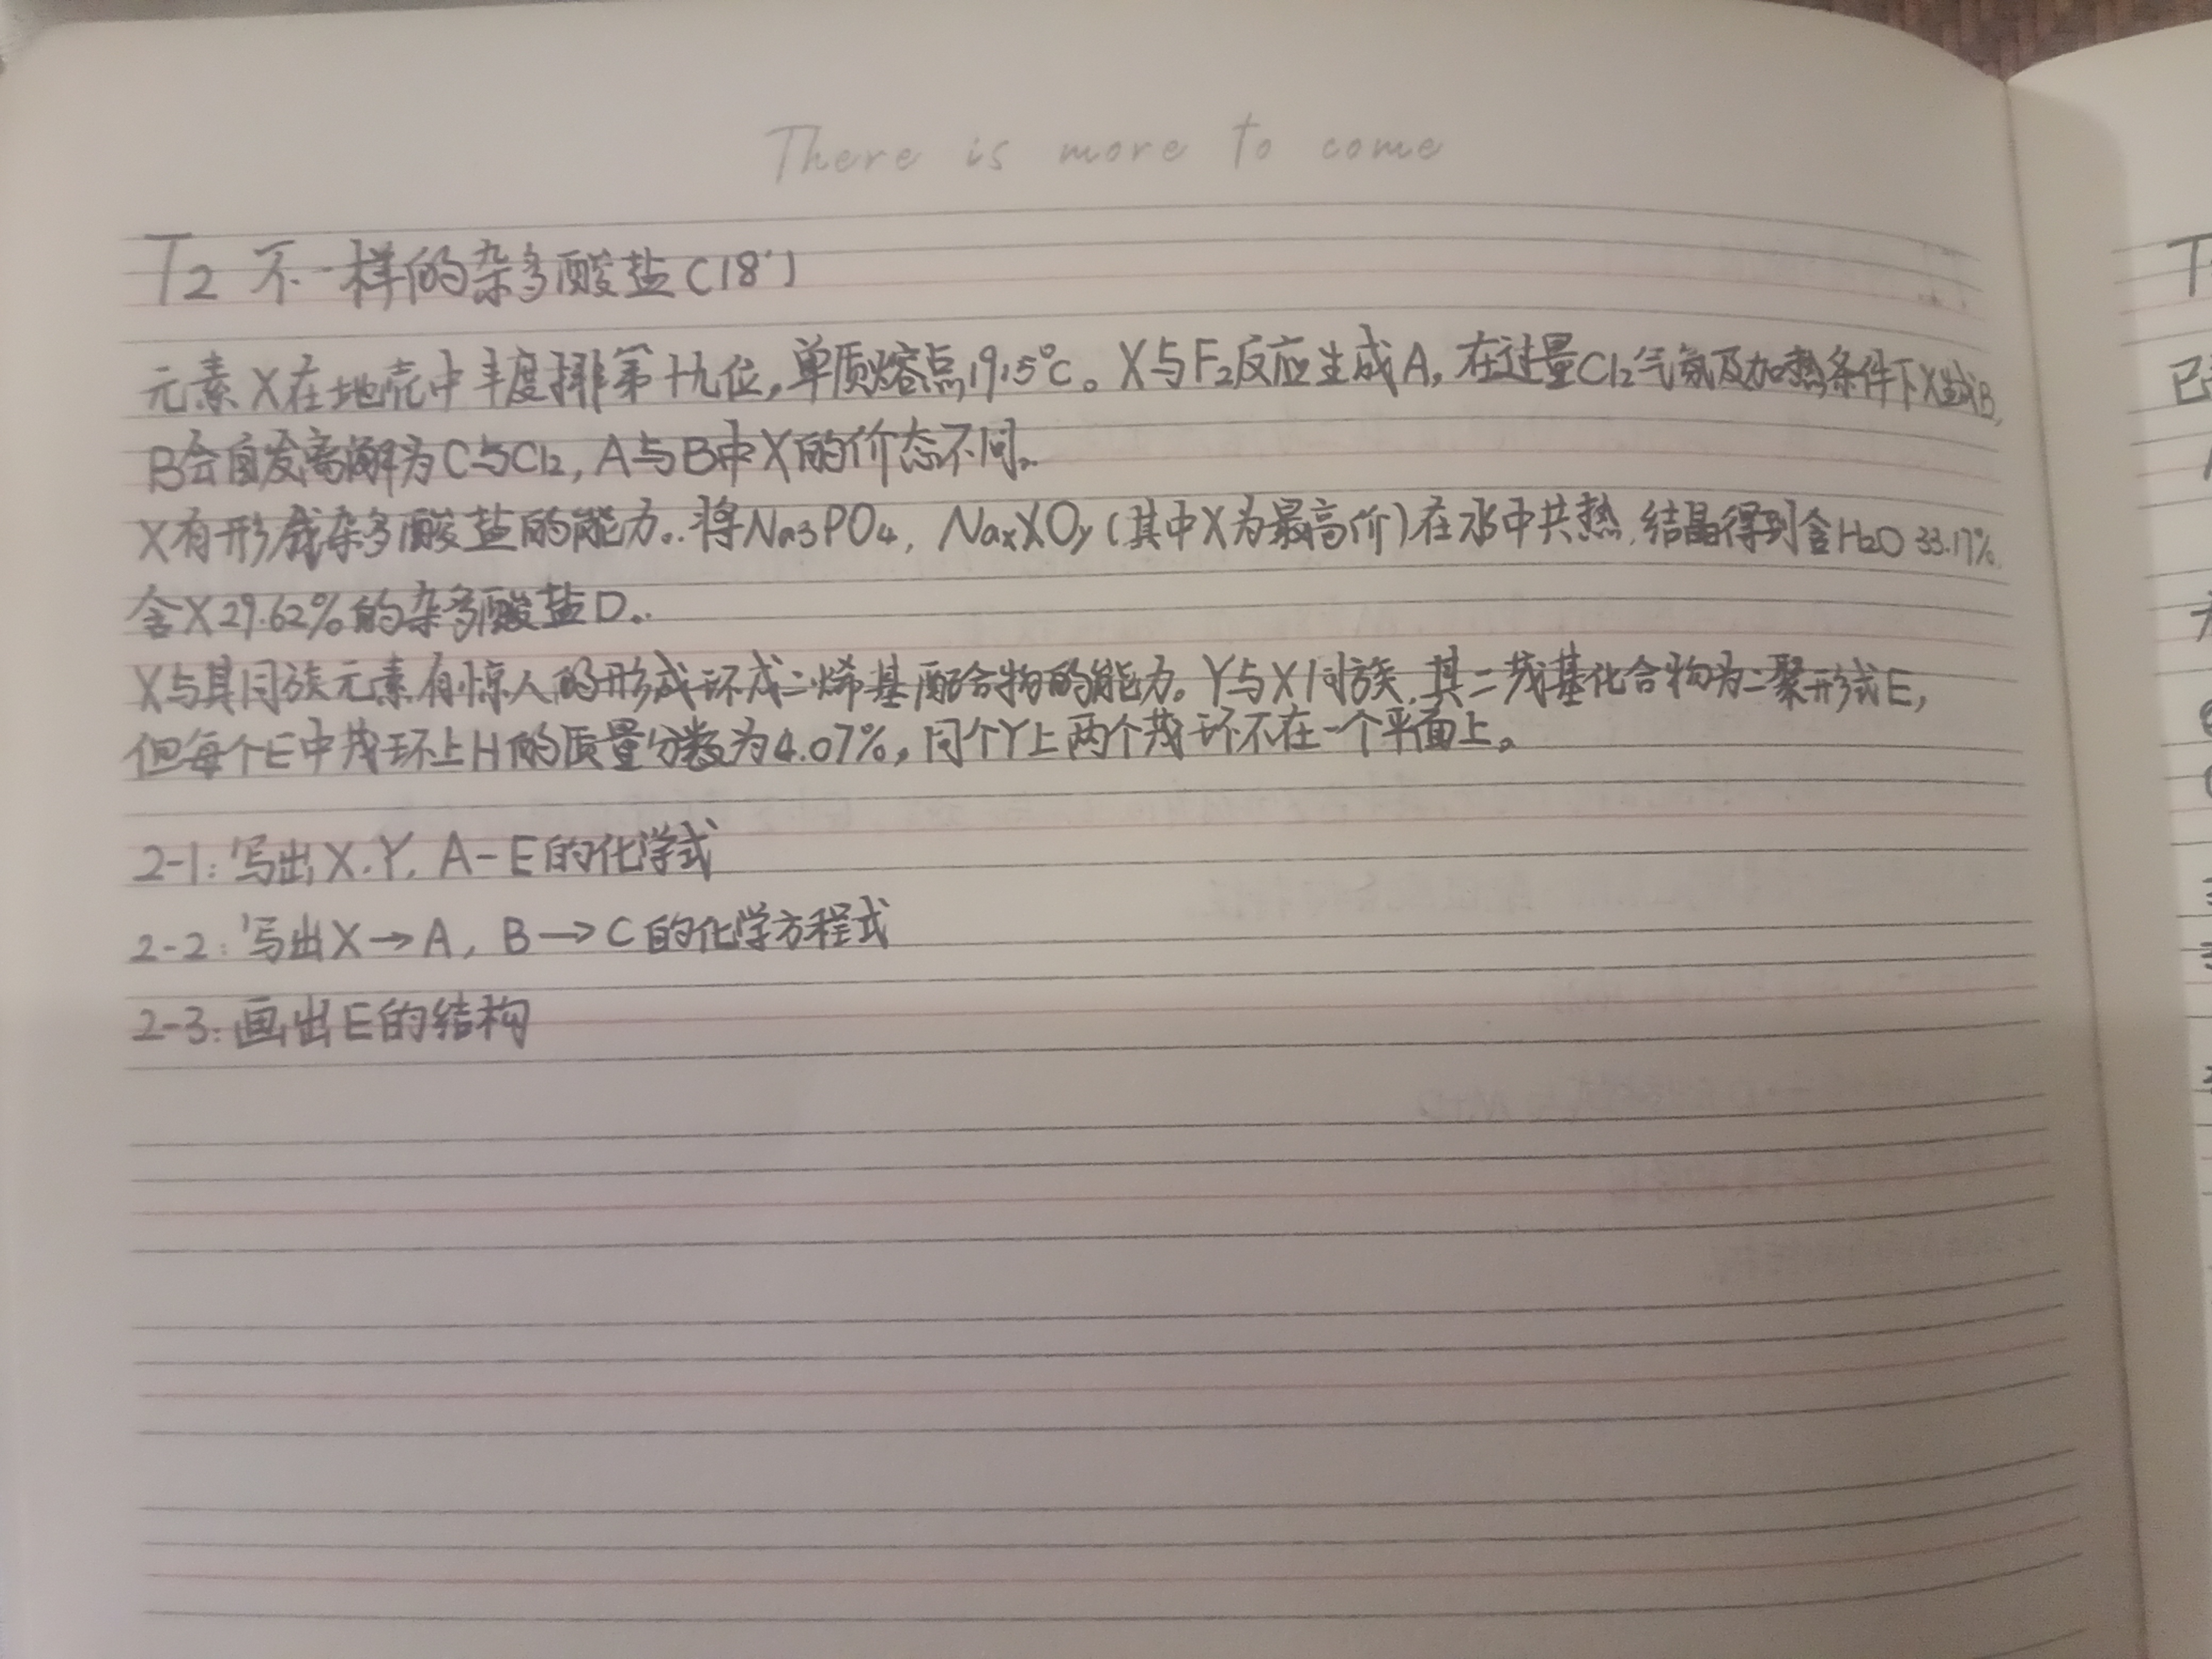 There is more to come
T2 不一样的杂多酸盐(18')
元素X在地壳中丰度排第十九位,单质熔点1915℃。X与F2反应生成A,在过量Cl2气氛及加热条件下X生成B,
B会自发离解为C与Cl2,A与B中X的价态不同。
X有形成杂多酸盐的能力。将Na3PO4,NaxXOy(其中X为最高价)在水中共热,结晶得到含H2O 33.17%
含X29.62%的杂多酸盐D。
X与其同族元素有惊人的形成环戊二烯基配合物的能力。Y与X同族,其二茂基化合物为二聚形式E,
但每个E中茂环上H的质量分数为4.07%,同个Y上两个茂环不在一个平面上。
2-1:写出X.Y.A-E的化学式
2-2:写出X→A,B→C的化学方程式
2-3:画出E的结构